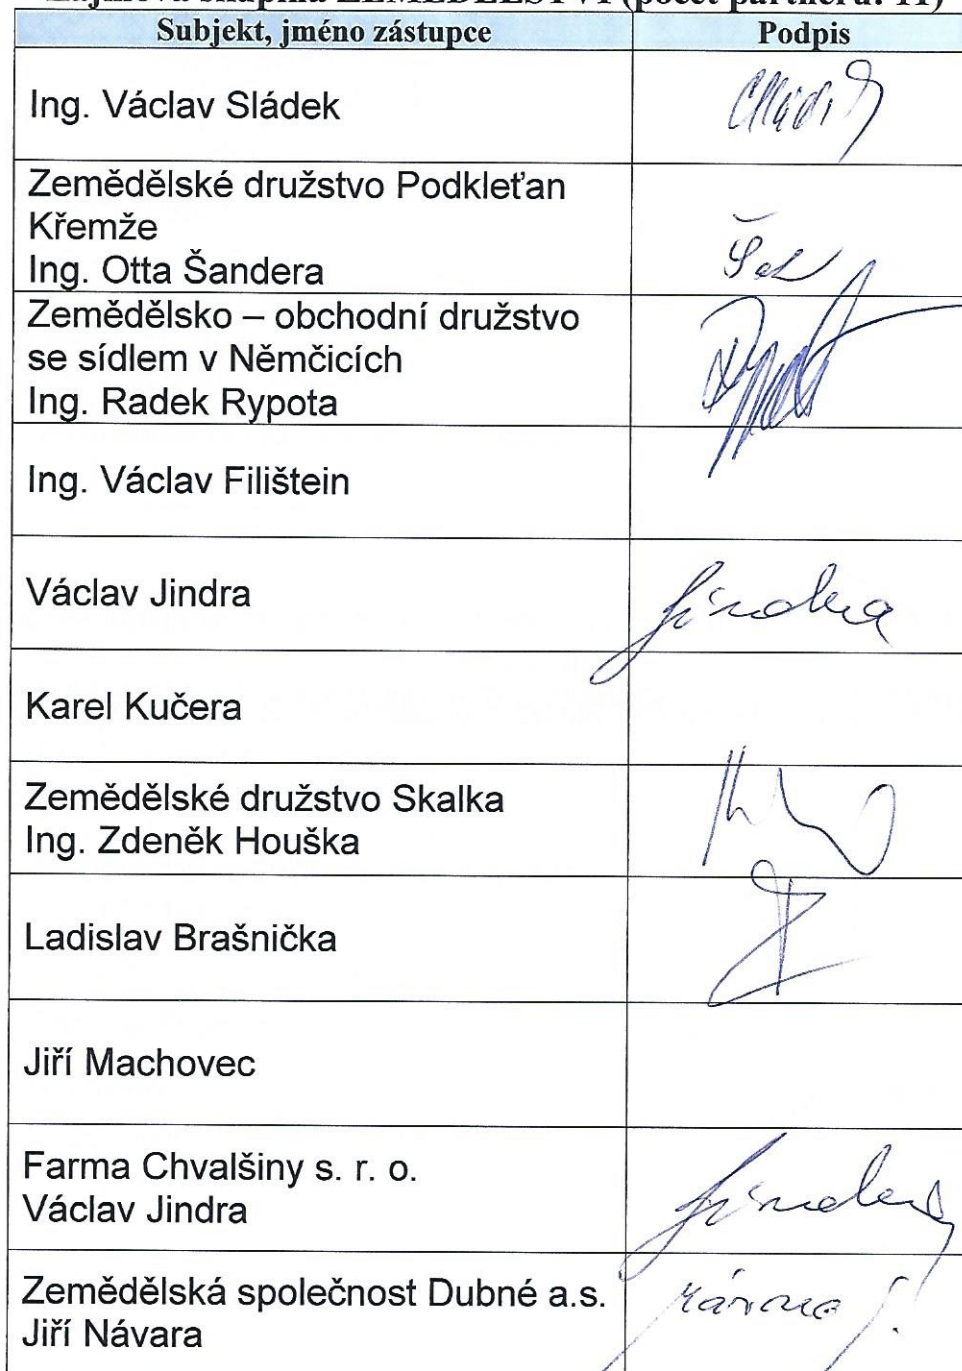 Zájmová skupina ZEMĚDĚLSTVÍ (počet partnerů: 11)
Subjekt, jméno zástupce Podpis
Ing. Václav Sládek
Zemědělské družstvo Podkleťan
Křemže
Ing. Otta Šandera
Zemědělsko – obchodní družstvo
se sídlem v Němčicích
Ing. Radek Rypota
Ing. Václav Filištein
Václav Jindra Jindra
Karel Kučera
Zemědělské družstvo Skalka
Ing. Zdeněk Houška
Ladislav Brašnička
Jiří Machovec
Farma Chvalšiny s. r. o.
Václav Jindra Jindra
Zemědělská společnost Dubné a.s.
Jiří Návara